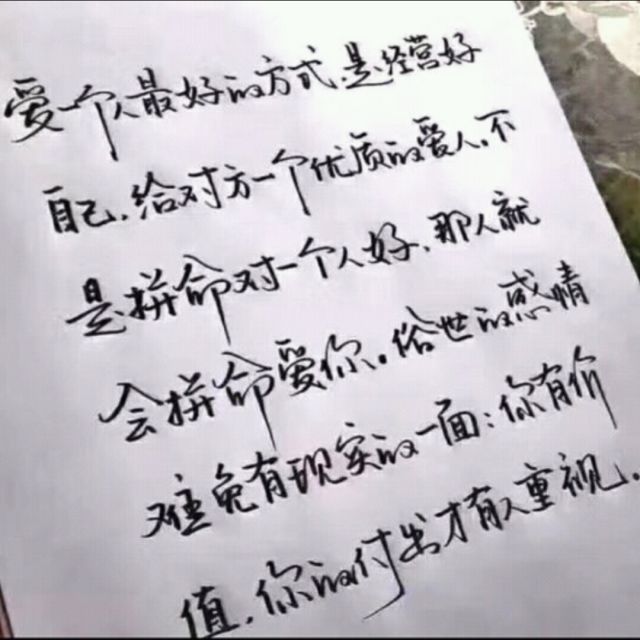 爱一个人最好的方式是经营好
自己.给对方一个优质的爱人.不
是拼命对一个人好.那人就
会拼命爱你.俗世的感情
难免有现实的一面:你有价
值.你的付出才有人重视.